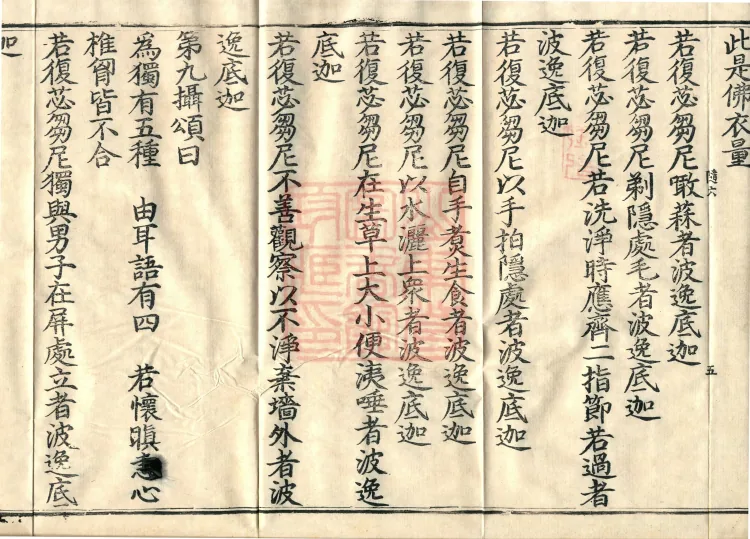 此是佛衣量
隨六
五
若復苾芻尼噉蒜者波逸底迦
若復苾芻尼剃隱處毛者波逸底迦
若復苾芻尼若洗淨時應齊二指節若過者
波逸底迦
若復苾芻尼以手拍隱處者波逸底迦
若復苾芻尼自手煑生食者波逸底迦
若復苾芻尼以水灑上衆者波逸底迦
若復苾芻尼在生草上大小便洟唾者波逸
底迦
若復苾芻尼不善觀察以不淨棄墻外者波
逸底迦
第九攝頌曰
為獨有五種　由耳語有四　若懷瞋恚心
椎胷皆不合
若復苾芻尼獨與男子在屏處立者波逸底